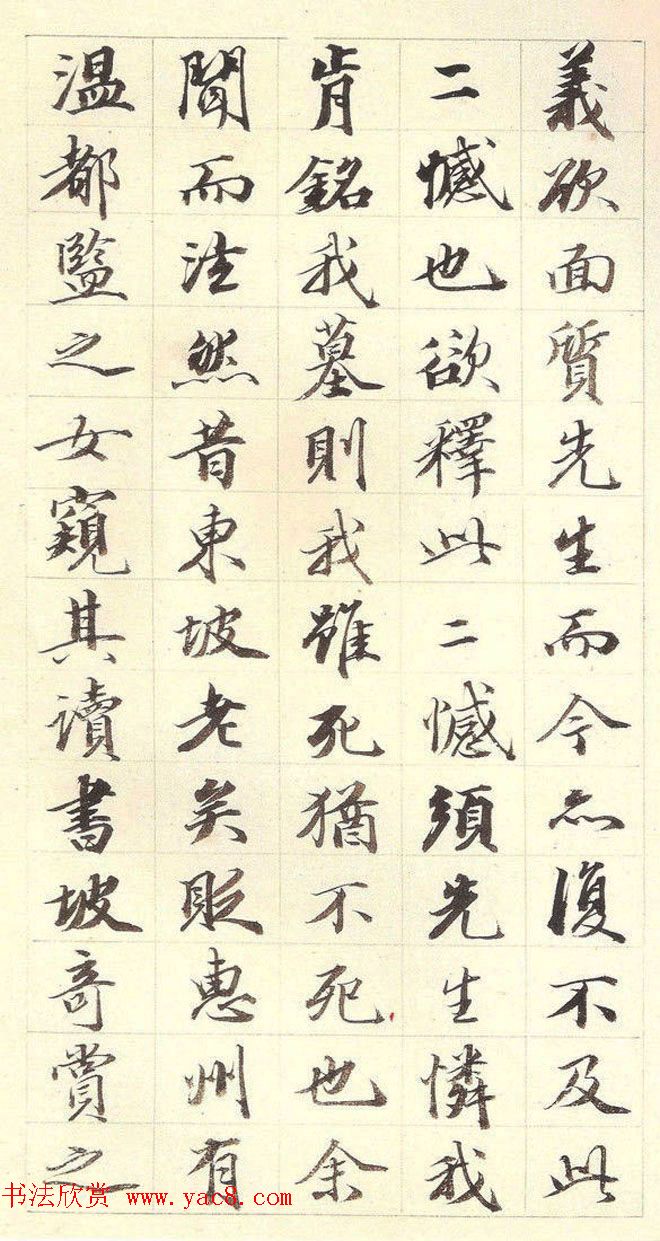 義欲面質先生而今亦復不及此
二憾也欲釋此二憾須先生憐我
肯銘我墓則我雖死猶不死也余
聞而泫然昔東坡老矣貶惠州有
温都監之女窺其讀書坡奇賞之
书法欣赏 www.yac8.com